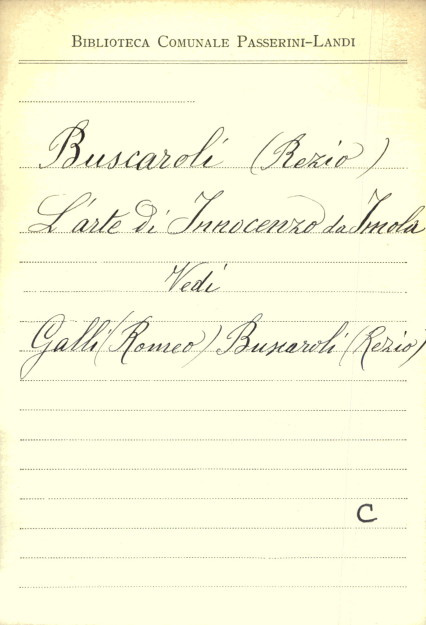 BIBLIOTECA COMUNALE PASSERINI-LANDI
Buscaroli (Rezio)
L'arte di Innocenzo da Imola
Vedi
Galli (Romeo) Buscaroli (Rezio)
C